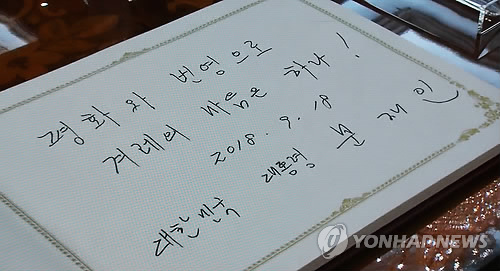 평화와 번영으로
겨레의 마음은 하나!
2018. 9. 18
대한민국 대통령 문재인
YONHAPNEWS